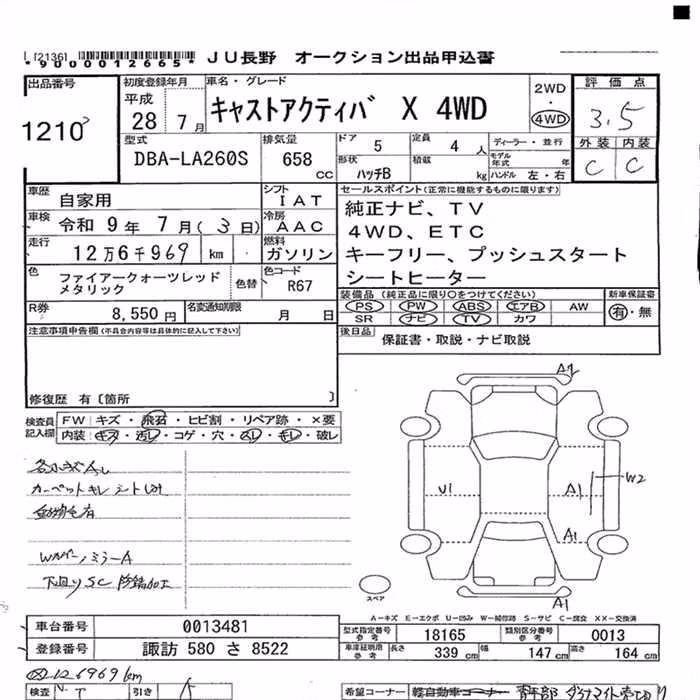 [2136] *9000012665* JU長野 オークション出品申込書
出品番号 初度登録年月 車名・グレード 2WD ・ 4WD 評価点
1210 平成 28年 7月 キャストアクティバ X 4WD 3.5
型式 排気量 ドア 5 定員 4人 ディーラー・並行 外装 内装
DBA-LA260S 658cc 形状 ハッチB 積載 kg モデル年式 年 ハンドル 左・右 C C
車歴 自家用 シフト IAT セールスポイント(正常に機能するものに限ります)
車検 令和 9年 7月(3日) 冷房 AAC 純正ナビ、TV
走行 12万6千969 km 燃料 ガソリン 4WD、ETC
キーフリー、プッシュスタート
シートヒーター
色 ファイアークォーツレッドメタリック 色替 色コード R67
装備品(純正品に限り○をつけてください) 新車保証書
R券 8,550円 名変通知期限 月 日 PS PW ABS エアB AW 有・無
SR ナビ TV カワ
注意事項申告欄(不具合内容等は具体的に記入して下さい) 後日品 保証書・取説・ナビ取説
修復歴 有〔箇所 〕
検査員記入欄 FW キズ・飛石・ヒビ割・リペア跡・×要
内装 キズ・汚レ・コゲ・穴・スレ・キレ・破レ
A1
W2
U1
A1
A1
スペア
A1
A-キズ E-エクボ U-凹み W-補修跡 S-サビ C-腐食 XX-交換済
車台番号 0013481 型式指定番号 参考 18165 類別区分番号 参考 0013
登録番号 諏訪 580 さ 8522 車庫証明用 参考 長さ 339cm 幅 147cm 高さ 164cm
126969km
検査 引き 希望コーナー 軽自動車コーナー